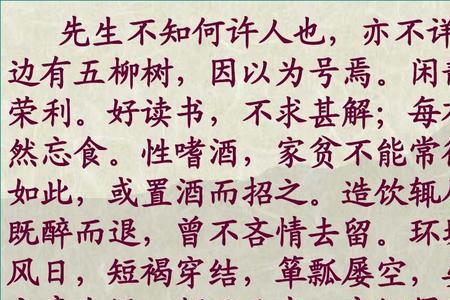 先生不知何许人也，亦不详
边有五柳树，因以为号焉。闲
荣利。好读书，不求甚解；每
然忘食。性嗜酒，家贫不能常
如此，或置酒而招之。造饮辄
既醉而退，曾不吝情去留。环
风日，短褐穿结，箪瓢屡空，